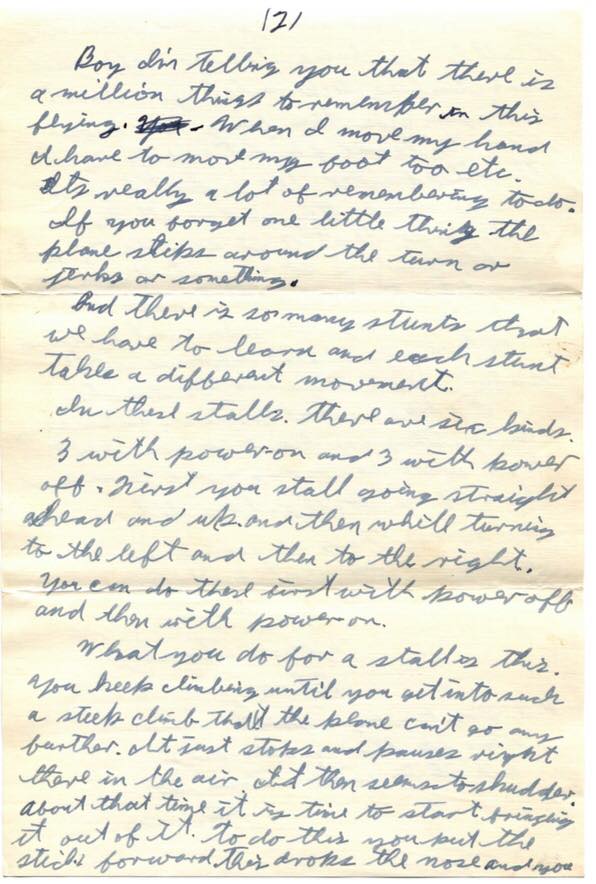 121
Boy I'm telling you that there is
a million things to remember in this
flying. When I move my hand
I have to move my foot too etc.
Its really a lot of remembering to do.
If you forget one little thing the
plane skips around the turn or
jerks or something.
And there is so many stunts that
we have to learn and each stunt
takes a different movement.
In these stalls. there are six kinds.
3 with power-on and 3 with power
off. First you stall going straight
ahead and up. and then while turning
to the left and then to the right.
You can do these first with power off
and then with power-on.
What you do for a stall is this.
You keep climbing until you get into such
a steep climb that the plane can't go any
further. It just stops and pauses right
there in the air. It then seems to shudder.
About that time it is time to start bringing
it out of it. To do this you put the
stick forward this drops the nose and you